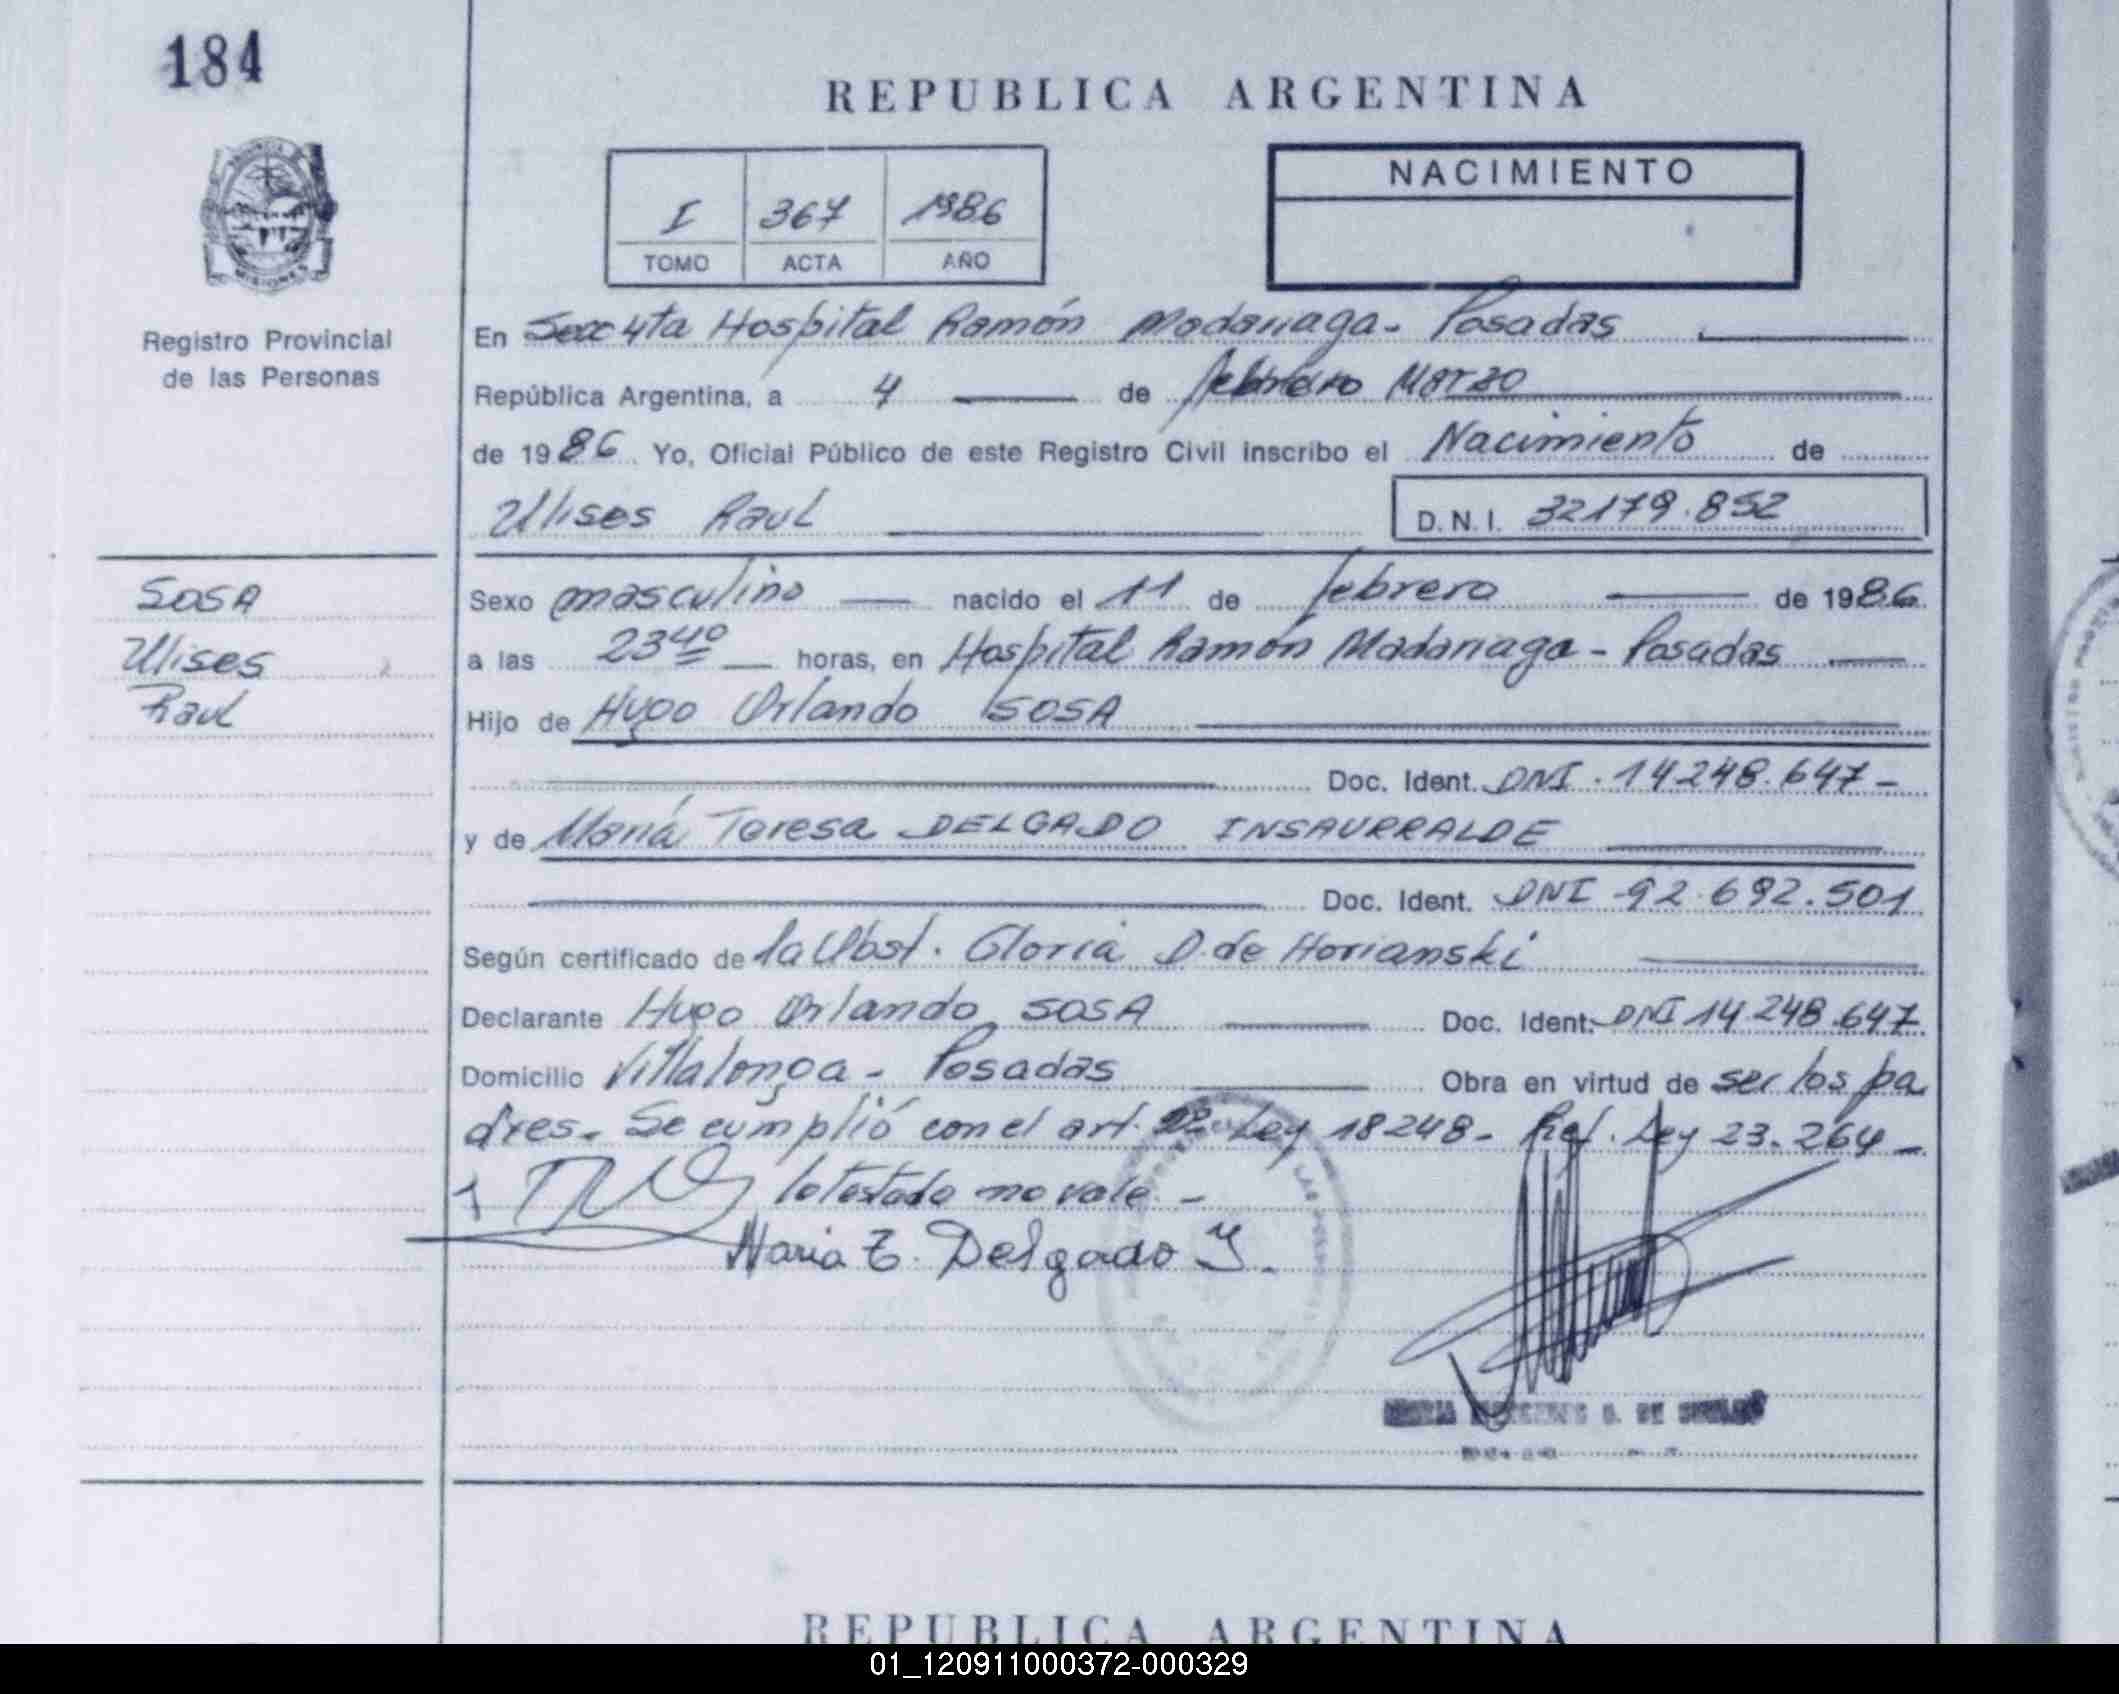 184
REPUBLICA ARGENTINA
I 367 1986
TOMO ACTA AÑO
NACIMIENTO
MISIONES
Registro Provincial
de las Personas
En Secc 4ta Hospital Ramón Madariaga - Posadas
República Argentina, a 4 de febrero Marzo
de 1986 Yo, Oficial Público de este Registro Civil inscribo el Nacimiento de
Ulises Raul D.N.I. 32179.852
SOSA
Ulises
Raul
Sexo masculino nacido el 11 de febrero de 1986
a las 23 40 horas, en Hospital Ramón Madariaga - Posadas
Hijo de Hugo Orlando SOSA
Doc. Ident. DNI. 14248.647-
y de María Teresa DELGADO INSAURRALDE
Doc. Ident. DNI 92.692.501
Según certificado de la Obst. Gloria D. de Horianski
Declarante Hugo Orlando SOSA Doc. Ident. DNI 14248.647
Domicilio Villalonga - Posadas Obra en virtud de ser los pa
dres. Se cumplió con el art. 2º Ley 18248- Ref. Ley 23.264-
lo testado no vale.-
Maria T. Delgado I.
REPUBLICA ARGENTINA
01_120911000372-000329